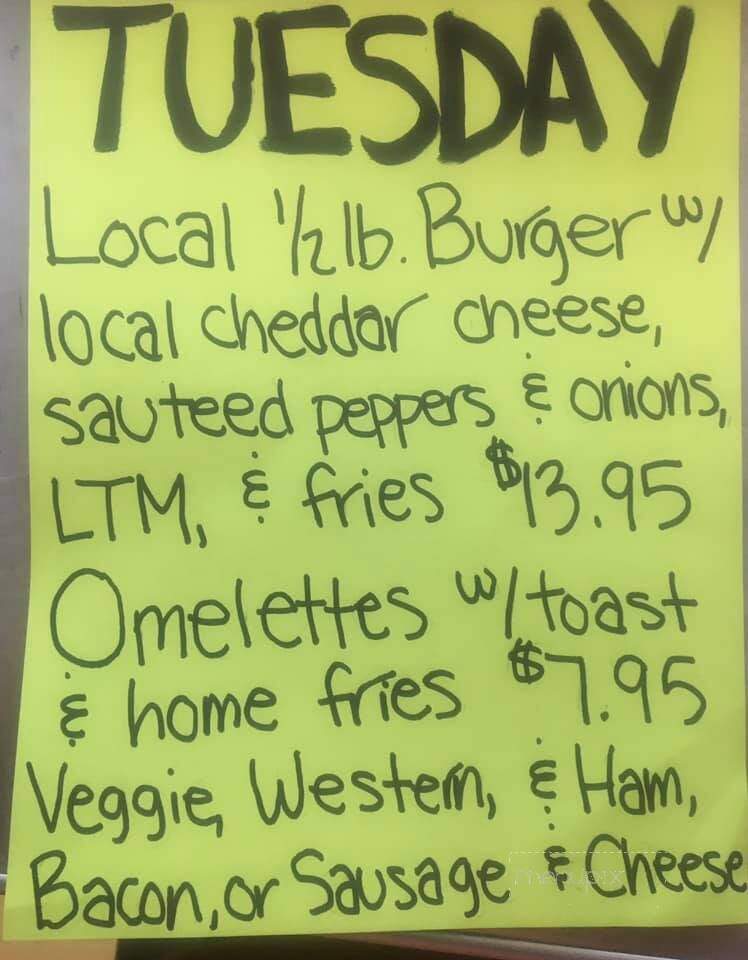 TUESDAY
Local 1/2 lb. Burger w/
local cheddar cheese,
sauteed peppers & onions,
LTM, & fries $13.95
Omelettes w/ toast
& home fries $7.95
Veggie, Western, & Ham,
Bacon, or Sausage & Cheese
menupix